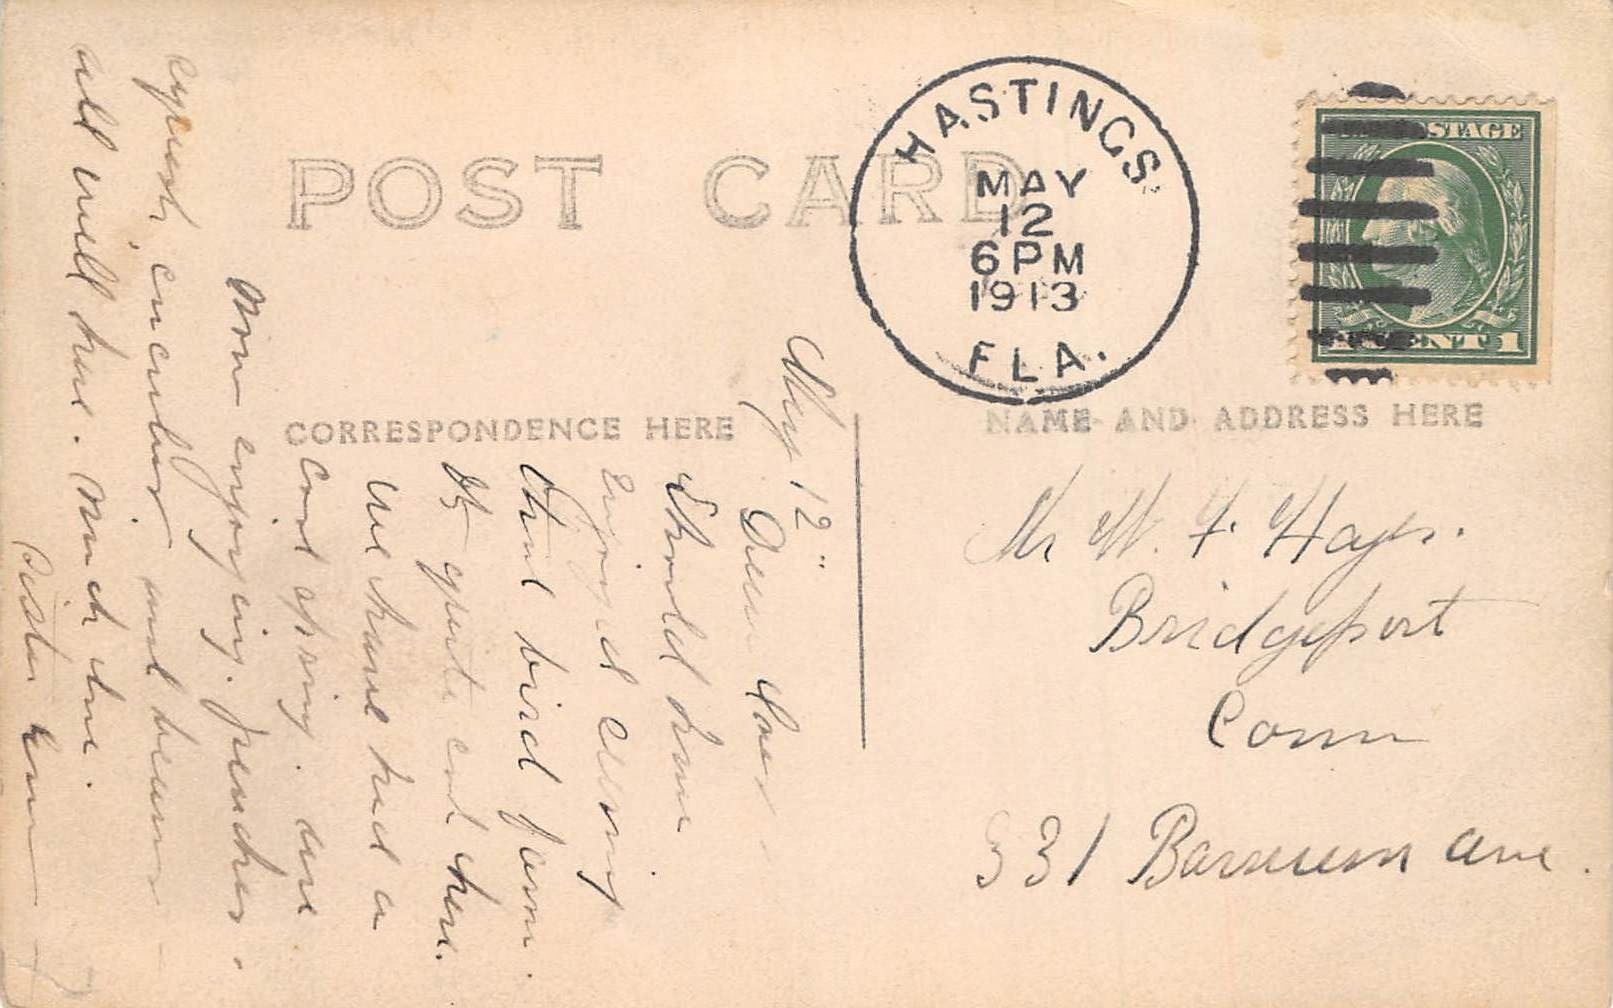 POST CARD
HASTINGS
MAY
12
6 PM
1913
FLA.
POSTAGE
1 CENT 1
CORRESPONDENCE HERE
NAME AND ADDRESS HERE
May 12"
Dear
Should have
Enjoyed seeing
that bird farm.
It quite cool here.
We have had a
cool spring. are
now enjoying. peaches.
cucumbers and beans
all well here. Much love.
Sister
Mr W. F. Hays.
Bridgeport
Conn
531 Barnum Ave.